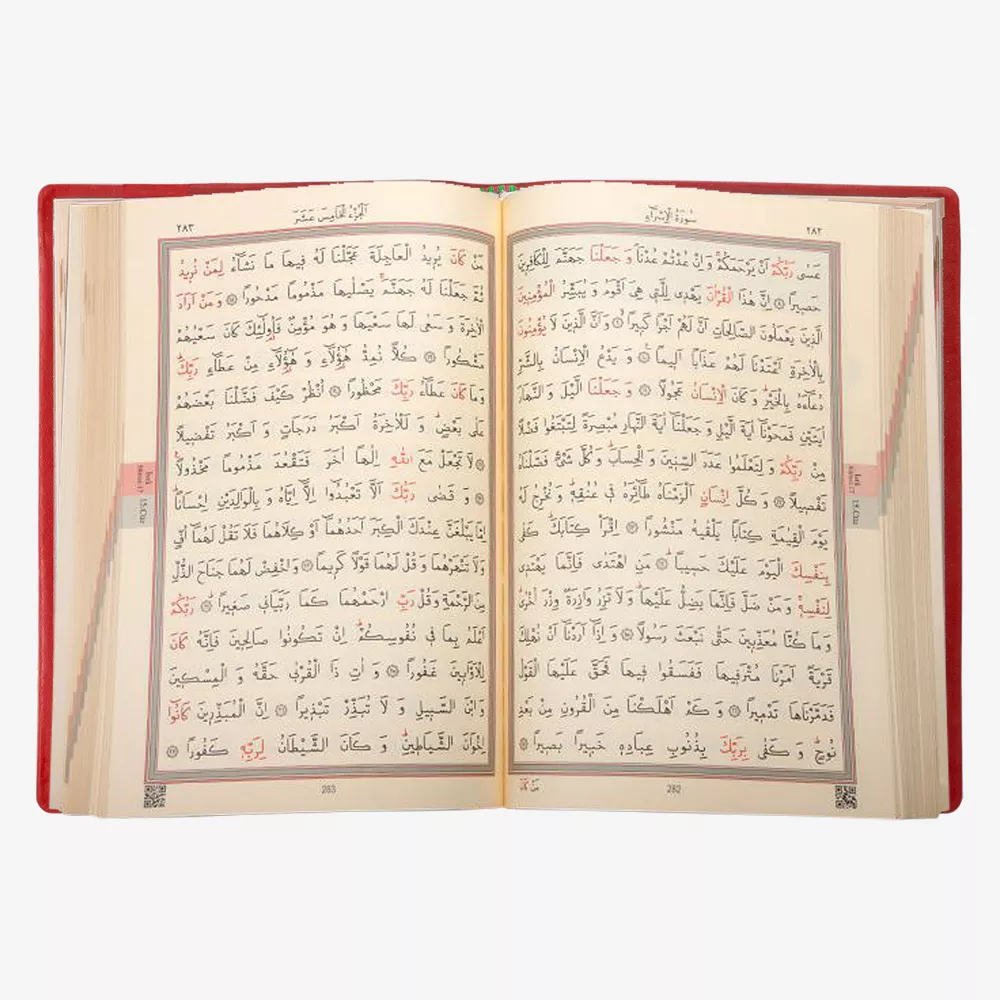 سُورَةُ الْاِسْرَاءِ
٢٨٢
عَسٰى رَبُّكُمْ اَنْ يَرْحَمَكُمْۚ وَاِنْ عُدْتُمْ عُدْنَاۢ وَجَعَلْنَا جَهَنَّمَ لِلْكَافِر۪ينَ
حَص۪يرًا ﴿٨﴾ اِنَّ هٰذَا الْقُرْاٰنَ يَهْد۪ي لِلَّت۪ي هِيَ اَقْوَمُ وَيُبَشِّرُ الْمُؤْمِن۪ينَ
الَّذ۪ينَ يَعْمَلُونَ الصَّالِحَاتِ اَنَّ لَهُمْ اَجْرًا كَب۪يرًاۙ ﴿٩﴾ وَاَنَّ الَّذ۪ينَ لَا يُؤْمِنُونَ
بِالْاٰخِرَةِ اَعْتَدْنَا لَهُمْ عَذَابًا اَل۪يمًا۟ ﴿١٠﴾ وَيَدْعُ الْاِنْسَانُ بِالشَّرِّ
دُعَٓاءَهُ بِالْخَيْرِۜ وَكَانَ الْاِنْسَانُ عَجُولًا ﴿١١﴾ وَجَعَلْنَا الَّيْلَ وَالنَّهَارَ
اٰيَتَيْنِ فَمَحَوْنَٓا اٰيَةَ الَّيْلِ وَجَعَلْنَٓا اٰيَةَ النَّهَارِ مُبْصِرَةً لِتَبْتَغُوا فَضْلًا
مِنْ رَبِّكُمْ وَلِتَعْلَمُوا عَدَدَ السِّن۪ينَ وَالْحِسَابَۜ وَكُلَّ شَيْءٍ فَصَّلْنَاهُ
تَفْص۪يلًا ﴿١٢﴾ وَكُلَّ اِنْسَانٍ اَلْزَمْنَاهُ طَٓائِرَهُ ف۪ي عُنُقِه۪ۜ وَنُخْرِجُ لَهُ
يَوْمَ الْقِيٰمَةِ كِتَابًا يَلْقٰيهُ مَنْشُورًا ﴿١٣﴾ اِقْرَأْ كِتَابَكَۜ كَفٰى
بِنَفْسِكَ الْيَوْمَ عَلَيْكَ حَس۪يبًاۜ ﴿١٤﴾ مَنِ اهْتَدٰى فَاِنَّمَا يَهْتَد۪ي
لِنَفْسِه۪ۚ وَمَنْ ضَلَّ فَاِنَّمَا يَضِلُّ عَلَيْهَاۜ وَلَا تَزِرُ وَازِرَةٌ وِزْرَ اُخْرٰىۜ
وَمَا كُنَّا مُعَذِّب۪ينَ حَتّٰى نَبْعَثَ رَسُولًا ﴿١٥﴾ وَاِذَٓا اَرَدْنَٓا اَنْ نُهْلِكَ
قَرْيَةً اَمَرْنَا مُتْرَف۪يهَا فَفَسَقُوا ف۪يهَا فَحَقَّ عَلَيْهَا الْقَوْلُ
فَدَمَّرْنَاهَا تَدْم۪يرًا ﴿١٦﴾ وَكَمْ اَهْلَكْنَا مِنَ الْقُرُونِ مِنْ بَعْدِ
نُوحٍۜ وَكَفٰى بِرَبِّكَ بِذُنُوبِ عِبَادِه۪ خَب۪يرًا بَص۪يرًا ﴿١٧﴾
مَنْ كَانَ
282
15.Cüz
٢٨٣
اَلْجُزْءُ الْخَامِسَ عَشَرَ
مَنْ كَانَ يُر۪يدُ الْعَاجِلَةَ عَجَّلْنَا لَهُ ف۪يهَا مَا نَشَٓاءُ لِمَنْ نُر۪يدُ
ثُمَّ جَعَلْنَا لَهُ جَهَنَّمَۚ يَصْلٰيهَا مَذْمُومًا مَدْحُورًا ﴿١٨﴾ وَمَنْ اَرَادَ
الْاٰخِرَةَ وَسَعٰى لَهَا سَعْيَهَا وَهُوَ مُؤْمِنٌ فَاُو۬لٰٓئِكَ كَانَ سَعْيُهُمْ
مَشْكُورًا ﴿١٩﴾ كُلًّا نُمِدُّ هٰٓؤُ۬لَٓاءِ وَهٰٓؤُ۬لَٓاءِ مِنْ عَطَٓاءِ رَبِّكَۜ
وَمَا كَانَ عَطَٓاءُ رَبِّكَ مَحْظُورًا ﴿٢٠﴾ اُنْظُرْ كَيْفَ فَضَّلْنَا بَعْضَهُمْ
عَلٰى بَعْضٍۜ وَلَلْاٰخِرَةُ اَكْبَرُ دَرَجَاتٍ وَاَكْبَرُ تَفْض۪يلًا
﴿٢١﴾ لَا تَجْعَلْ مَعَ اللّٰهِ اِلٰهًا اٰخَرَ فَتَقْعُدَ مَذْمُومًا مَخْذُولًا۟
﴿٢٢﴾ وَقَضٰى رَبُّكَ اَلَّا تَعْبُدُٓوا اِلَّٓا اِيَّاهُ وَبِالْوَالِدَيْنِ اِحْسَانًاۜ
اِمَّا يَبْلُغَنَّ عِنْدَكَ الْكِبَرَ اَحَدُهُمَٓا اَوْ كِلَاهُمَا فَلَا تَقُلْ لَهُمَٓا اُفٍّ
وَلَا تَنْهَرْهُمَا وَقُلْ لَهُمَا قَوْلًا كَر۪يمًا ﴿٢٣﴾ وَاخْفِضْ لَهُمَا جَنَاحَ الذُّلِّ
مِنَ الرَّحْمَةِ وَقُلْ رَبِّ ارْحَمْهُمَا كَمَا رَبَّيَان۪ي صَغ۪يرًاۜ ﴿٢٤﴾ رَبُّكُمْ
اَعْلَمُ بِمَا ف۪ي نُفُوسِكُمْۜ اِنْ تَكُونُوا صَالِح۪ينَ فَاِنَّهُ كَانَ
لِلْاَوَّاب۪ينَ غَفُورًا ﴿٢٥﴾ وَاٰتِ ذَا الْقُرْبٰى حَقَّهُ وَالْمِسْك۪ينَ
وَابْنَ السَّب۪يلِ وَلَا تُبَذِّرْ تَبْذ۪يرًا ﴿٢٦﴾ اِنَّ الْمُبَذِّر۪ينَ كَانُٓوا
اِخْوَانَ الشَّيَاط۪ينِۜ وَكَانَ الشَّيْطَانُ لِرَبِّه۪ كَفُورًا ﴿٢٧﴾
283
15.Cüz